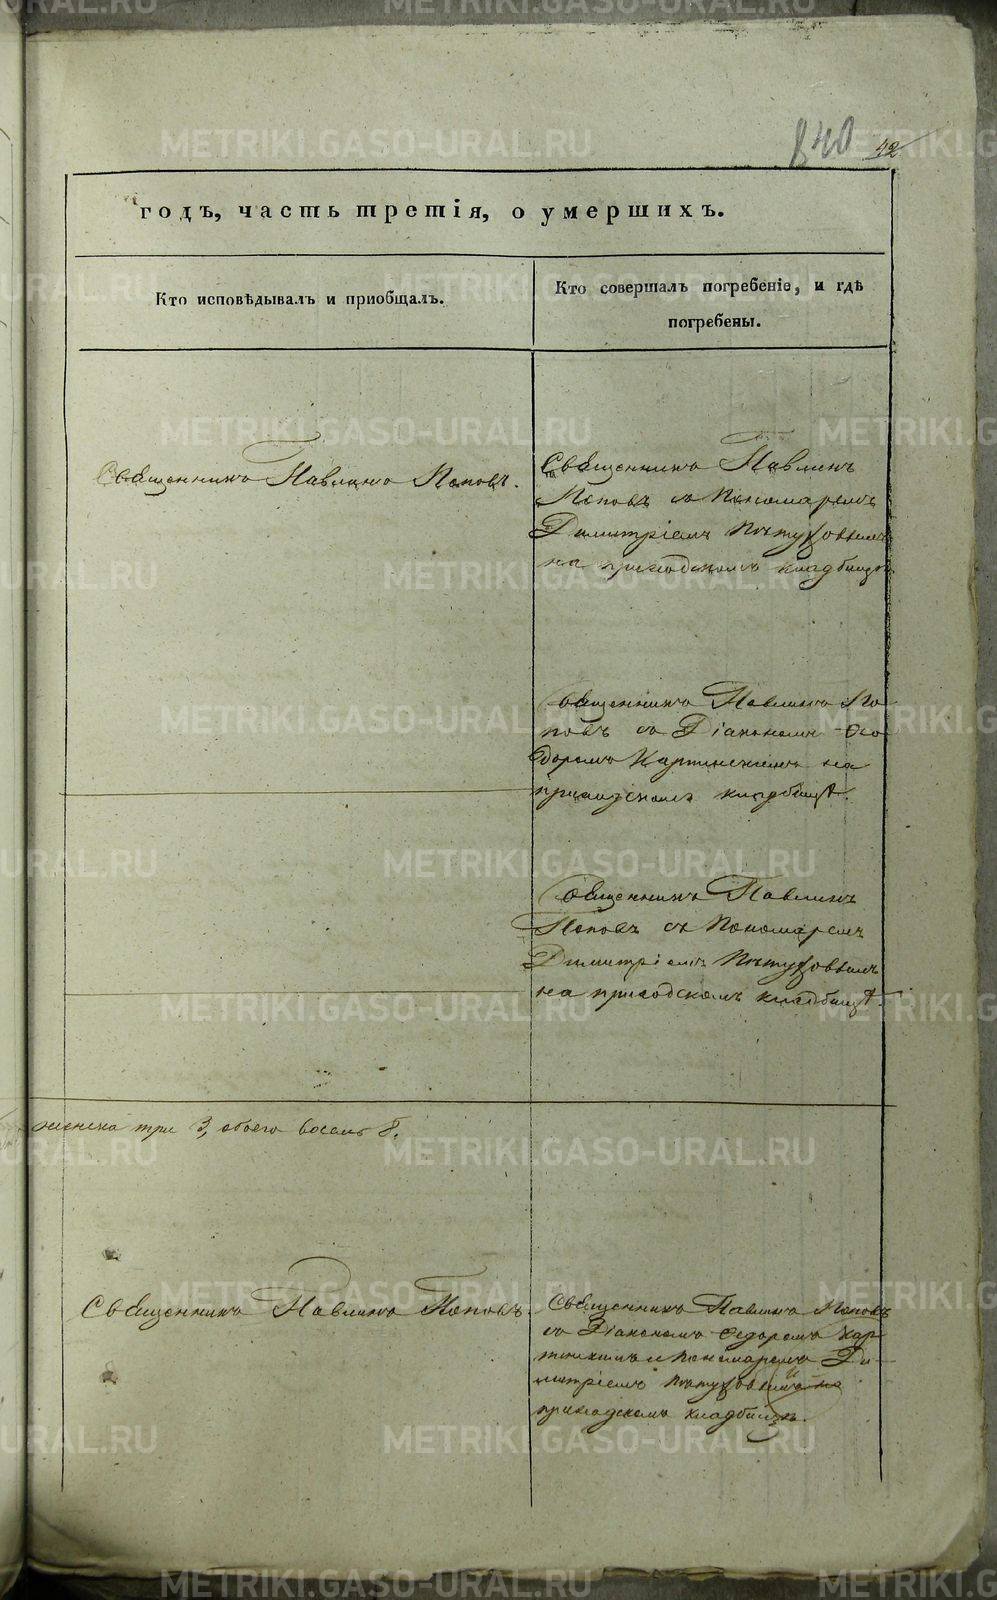 840 42
годъ, часть третія, о умершихъ.
Кто исповѣдывалъ и приобщалъ.
Кто совершалъ погребеніе, и гдѣ
погребены.
Священникъ Павлинъ Поповъ.
Священникъ Павлинъ
Поповъ съ Пономаремъ
Димитріемъ Пѣтуховымъ
на приходскомъ кладбищѣ.
Священникъ Павлинъ По-
повъ съ Діакономъ Ѳео
доромъ на
приходскомъ кладбищѣ.
Священникъ Павлинъ
Поповъ съ Пономаремъ
Димитріемъ Пѣтуховымъ
на приходскомъ кладбищѣ.
женска три 3, обоего восемь 8.
Священникъ Павлинъ Поповъ.
Священникъ Павлинъ Поповъ
съ Діакономъ Ѳедоромъ
и пономаремъ Ди-
митріемъ Пѣтуховымъ на
приходскомъ кладбищѣ.
METRIKI.GASO-URAL.RU